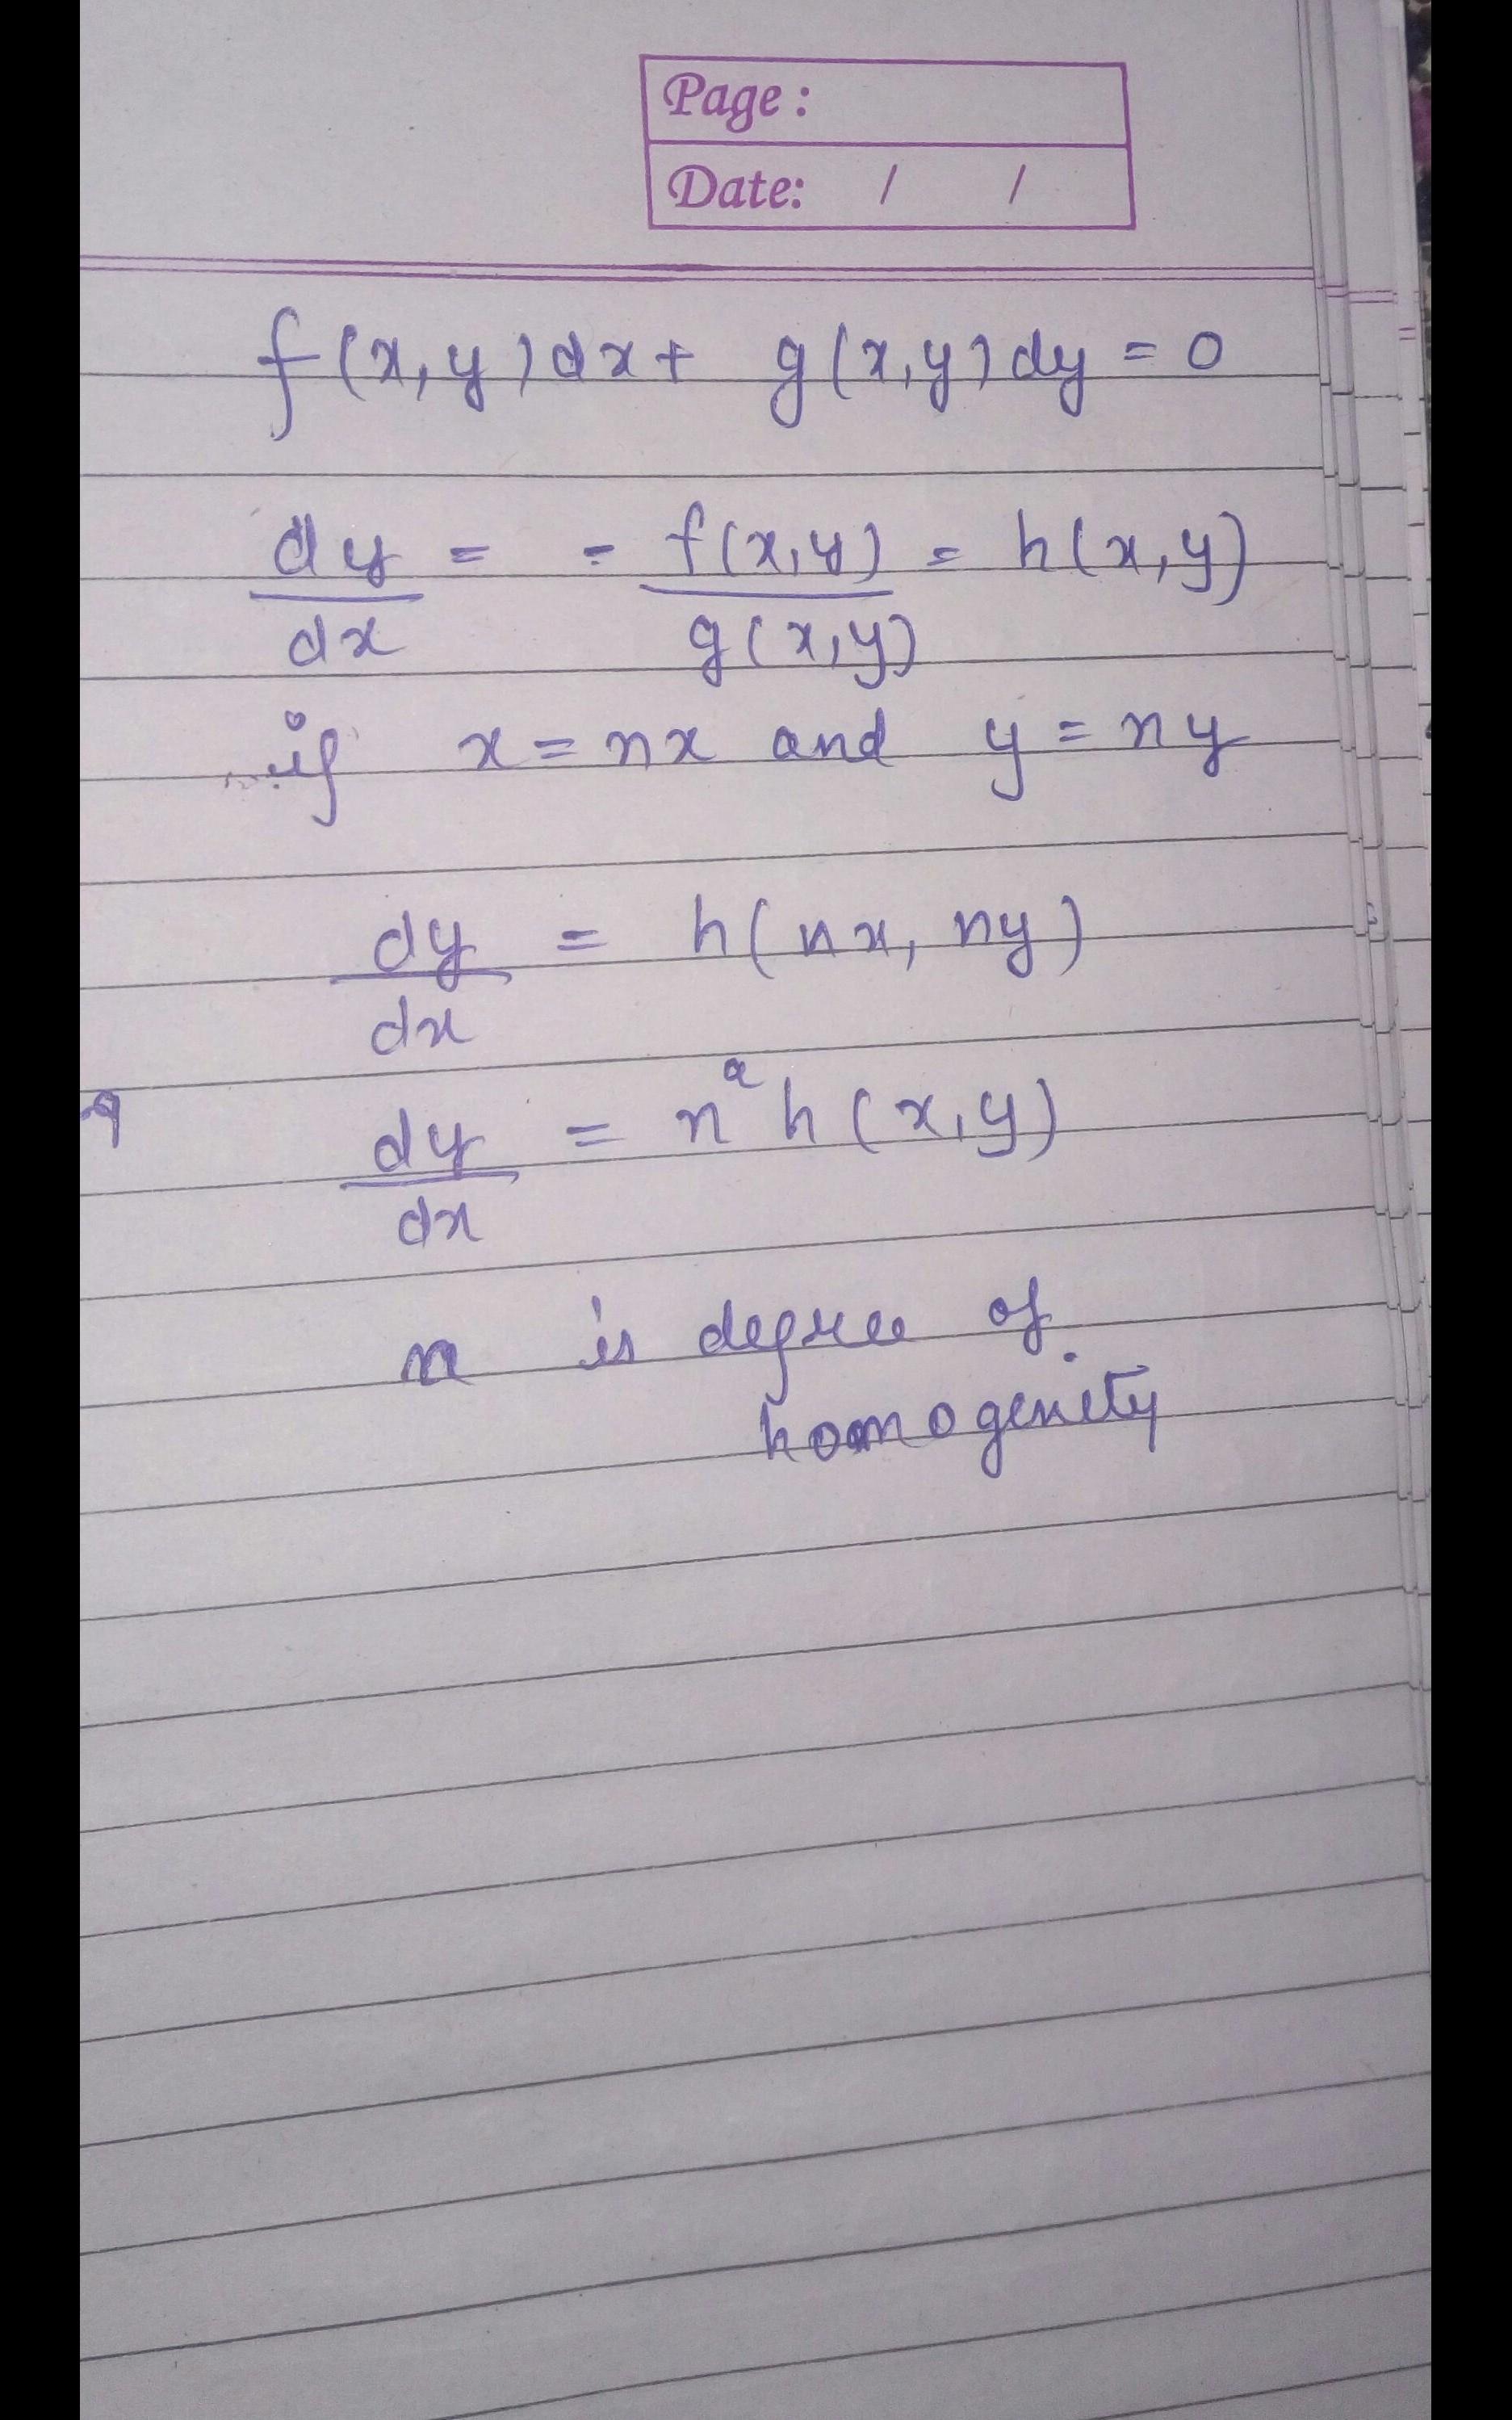 Page :
Date: / /
f(x,y)dx + g(x,y)dy = 0
dy/dx = - f(x,y)/g(x,y) = h(x,y)
if x = nx and y = ny
dy/dx = h(nx, ny)
dy/dx = n^a h(x,y)
is degree of
homogenity